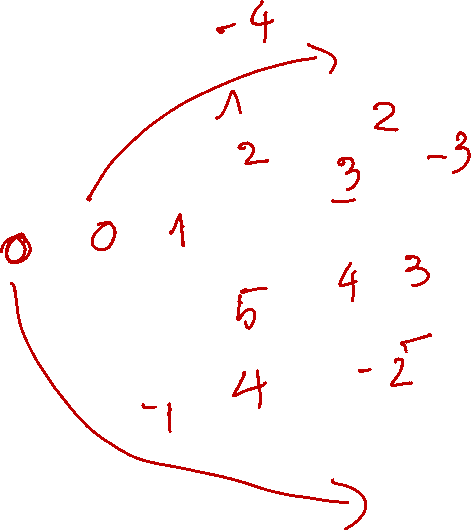 -4
1
2
2
3
-3
0
0
1
5
4
3
4
-2
-1